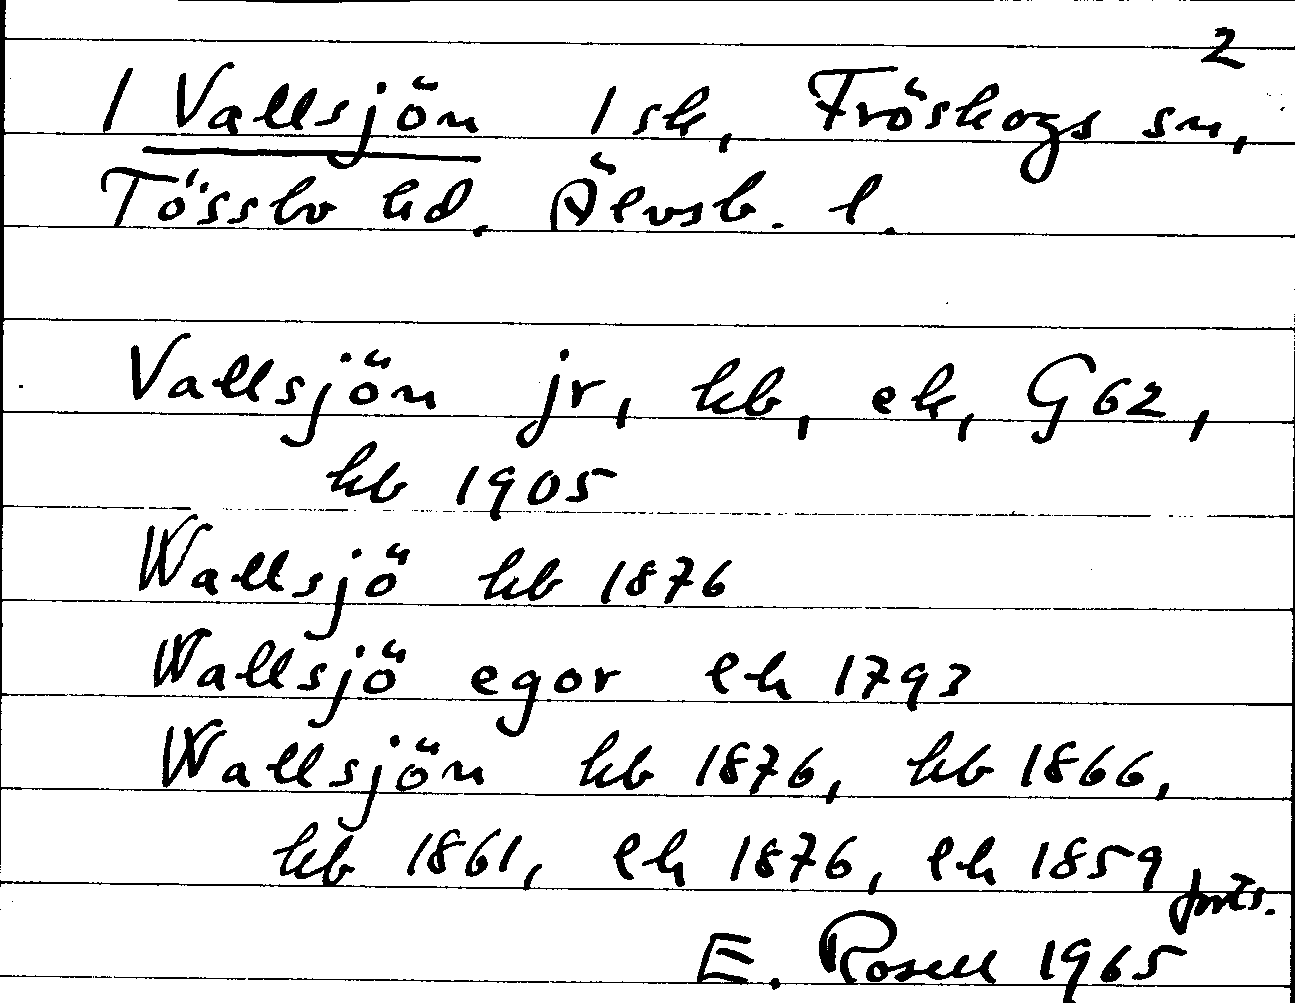 2
1 Vallsjön 1 sk, Fröskogs sn,
Tössbo hd. Älvsb. l.
Vallsjön jr, kb, ek, G62,
kb 1905
Wallsjö kb 1876
Wallsjö egor lh 1793
Wallsjön kb 1876, kb 1866,
kb 1861, lh 1876, lh 1859
forts.
E. Rosell 1965